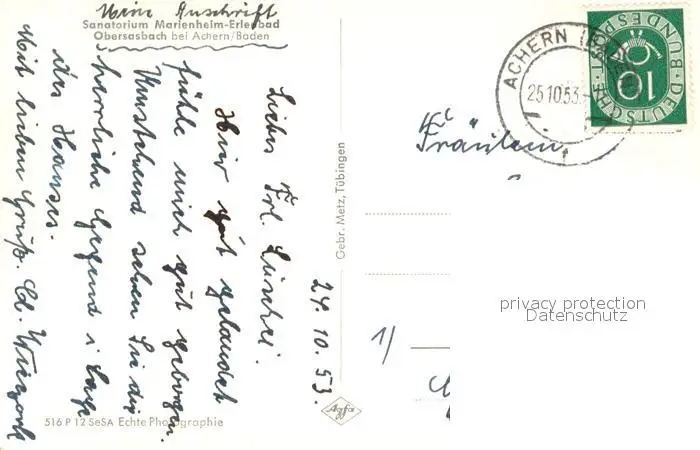 Meine Anschrift
Sanatorium Marienheim-Erlenbad
Obersasbach bei Achern/Baden
24.10.53.
Liebes Frl. Luischei!
Hier gut gelandet
fühle mich gut geborgen.
Umstehend sehen Sie die
herrliche Gegend i. Lage
des Hauses.
Mit lieben Gruß. Ed.
516 P 12 SeSA Echte Photographie
Gebr. Metz, Tübingen
Agfa
ACHERN
25.10.53.
DEUTSCHE BUNDESPOST
10
Fräulein
1)
privacy protection
Datenschutz